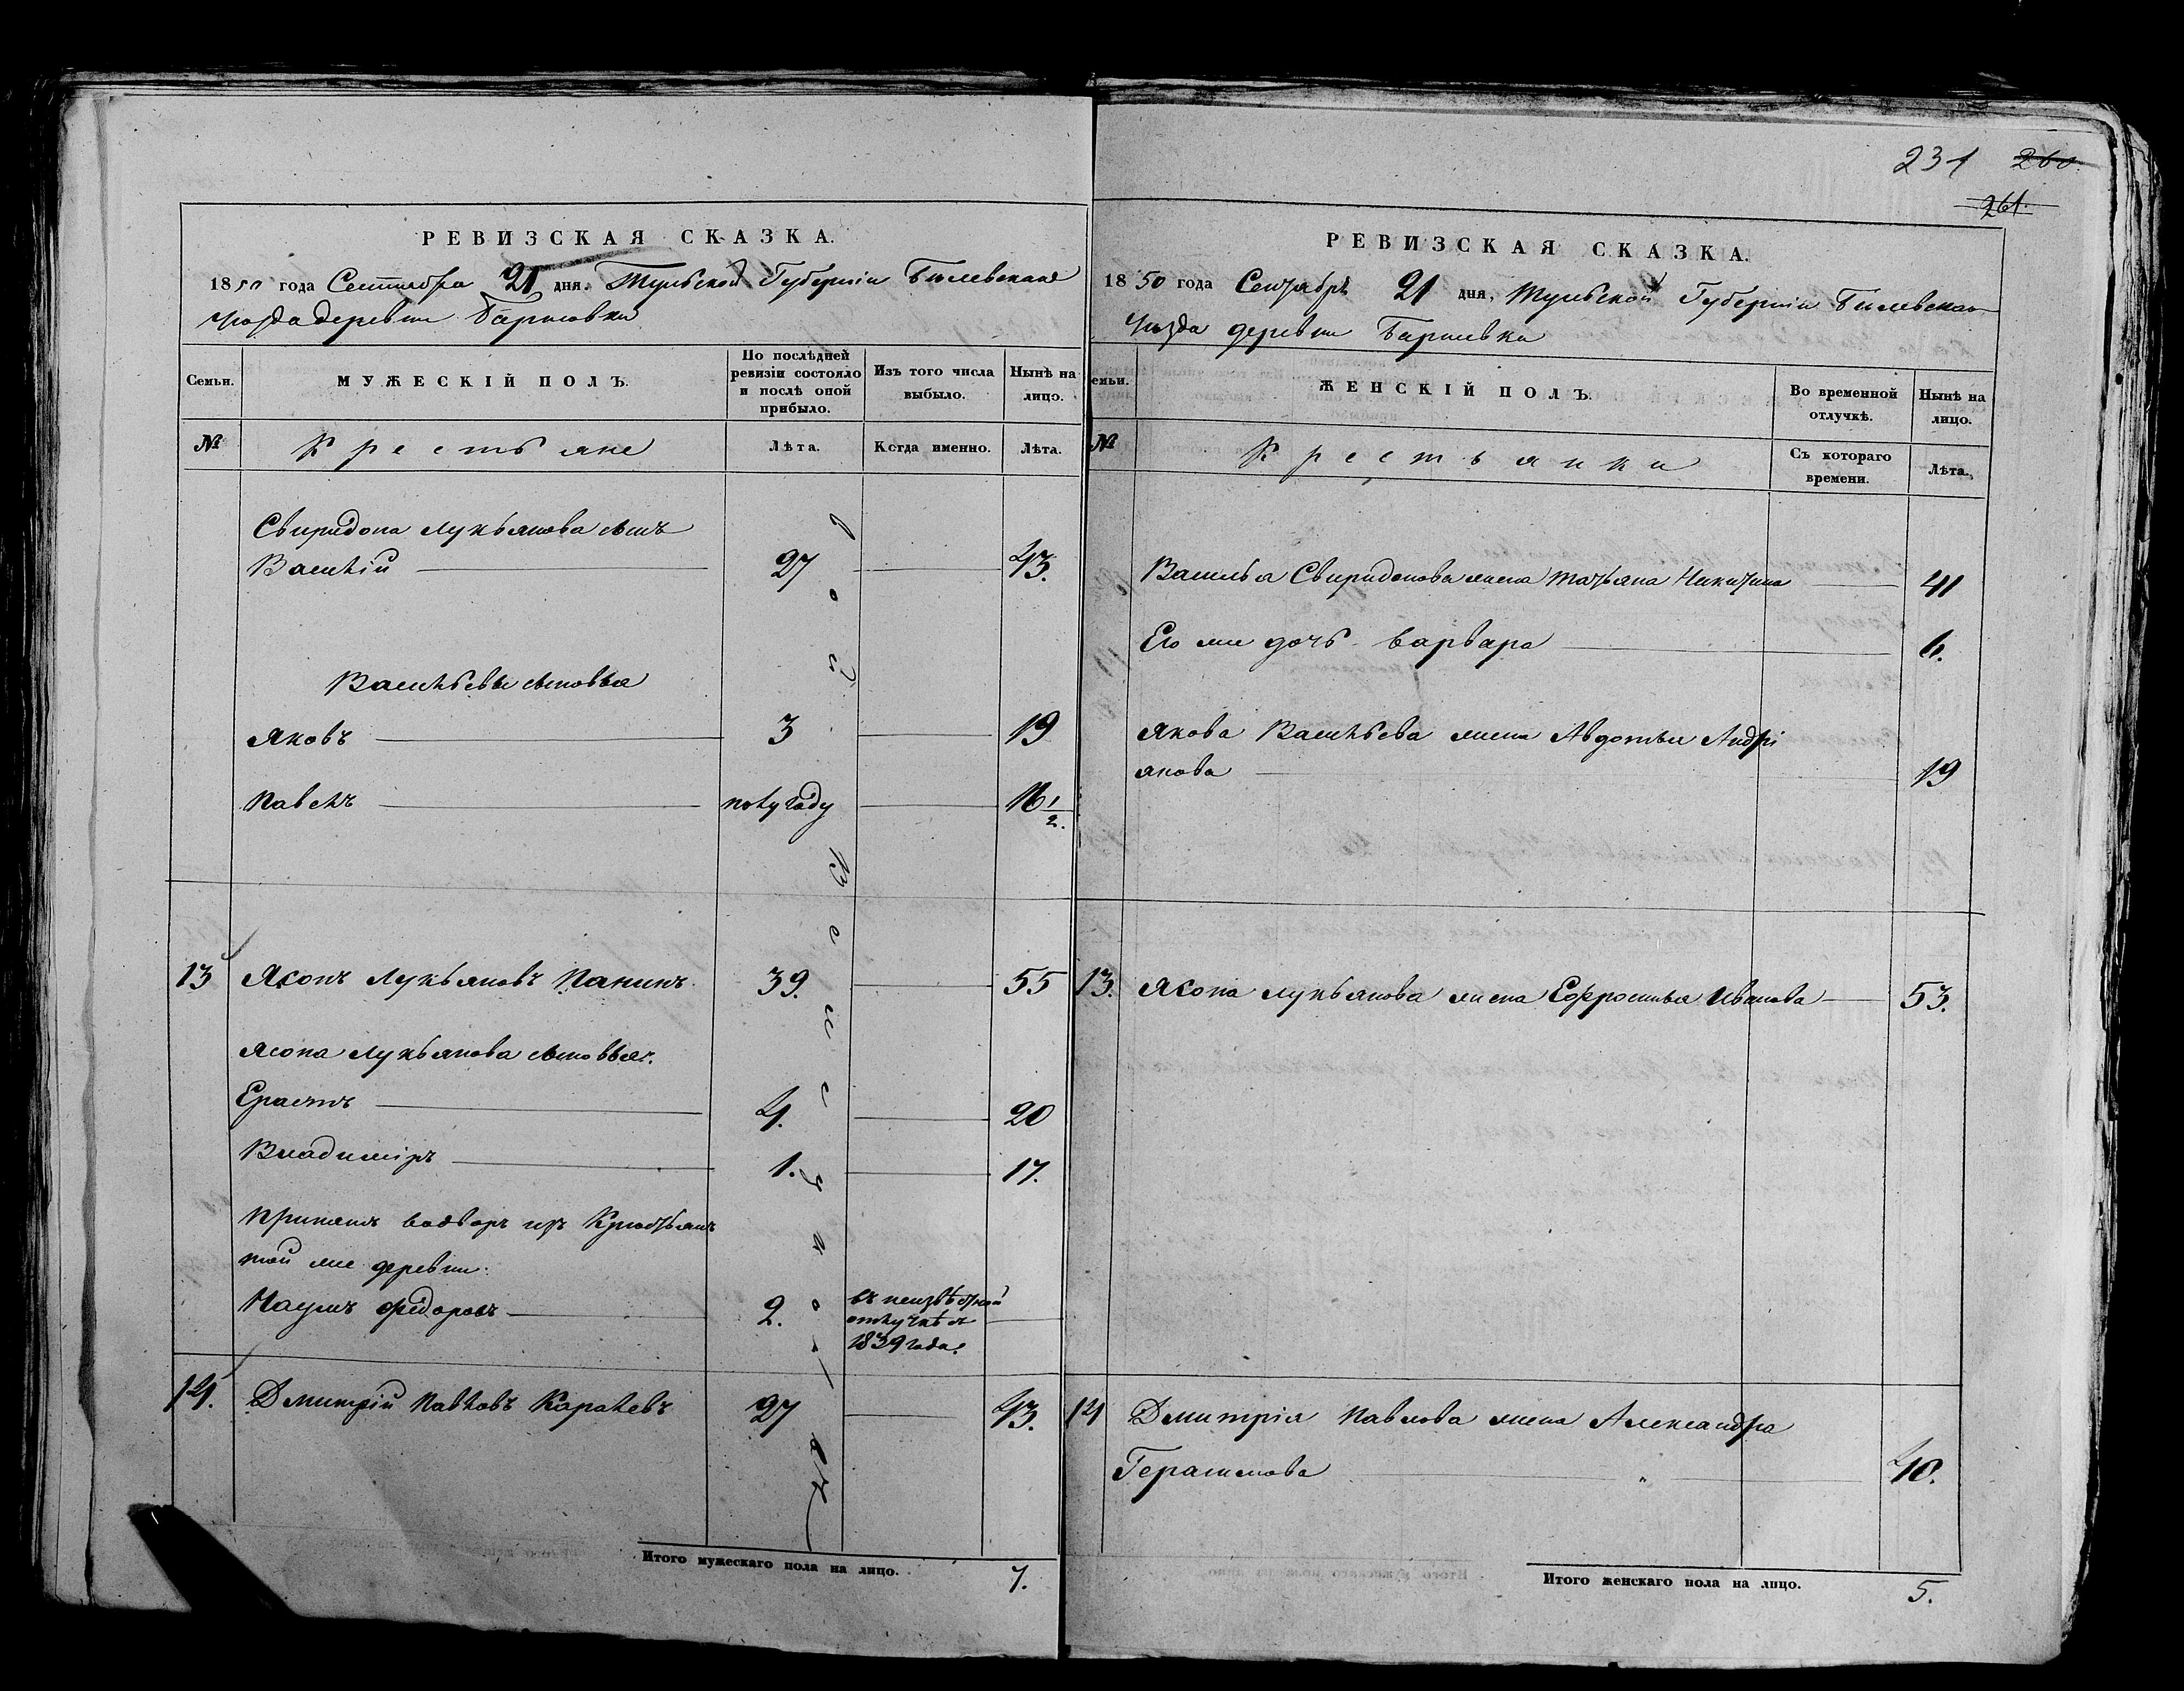 231 260.
261.
РЕВИЗСКАЯ СКАЗКА.
1850 года Сентября 21 дня. Тульской Губернiи Бѣлевскаго
уѣзда деревни
Семьи.
МУЖЕСКІЙ ПОЛЪ.
По послѣдней
ревизіи состояло
и послѣ оной
прибыло.
Изъ того числа
выбыло.
Нынѣ на
лицо.
№
Крестьяне
Лѣта.
Когда именно.
Лѣта.
Свиридона Лукьянова сынъ
Василій 27 43.
Васильевы сыновья
Яковъ 3 19
Павелъ полугоду 16 1/2.
13 Ясонъ Лукьяновъ Панинъ 39. 55
Ясона Лукьянова сыновья.
Ерастъ 4. 20
Владиміръ 1. 17.
той же деревни.
Наумъ Федоровъ 2. въ неизвѣстной
отлучкѣ съ
1839 года.
14. Дмитрій Павловъ 27 43.
Итого мужескаго пола на лицо. 7.
РЕВИЗСКАЯ СКАЗКА.
1850 года Сентября 21 дня, Тульской Губерніи Бѣлевскаго
Уѣзда деревни
Семьи.
ЖЕНСКІЙ ПОЛЪ.
Во временной
отлучкѣ.
Нынѣ на
лицо.
№
Крестьянки
Съ котораго
времени.
Лѣта.
Василья Свиридонова жена Татьяна Никитина 41
Его же дочь Варвара 6.
Якова Васильева жена Авдотья Андрі
янова 19
13. Ясона Лукьянова жена Ефросинья Иванова 53.
14 Дмитрія Павлова жена Александра
Герасимова 40.
Итого женскаго пола на лицо. 5.